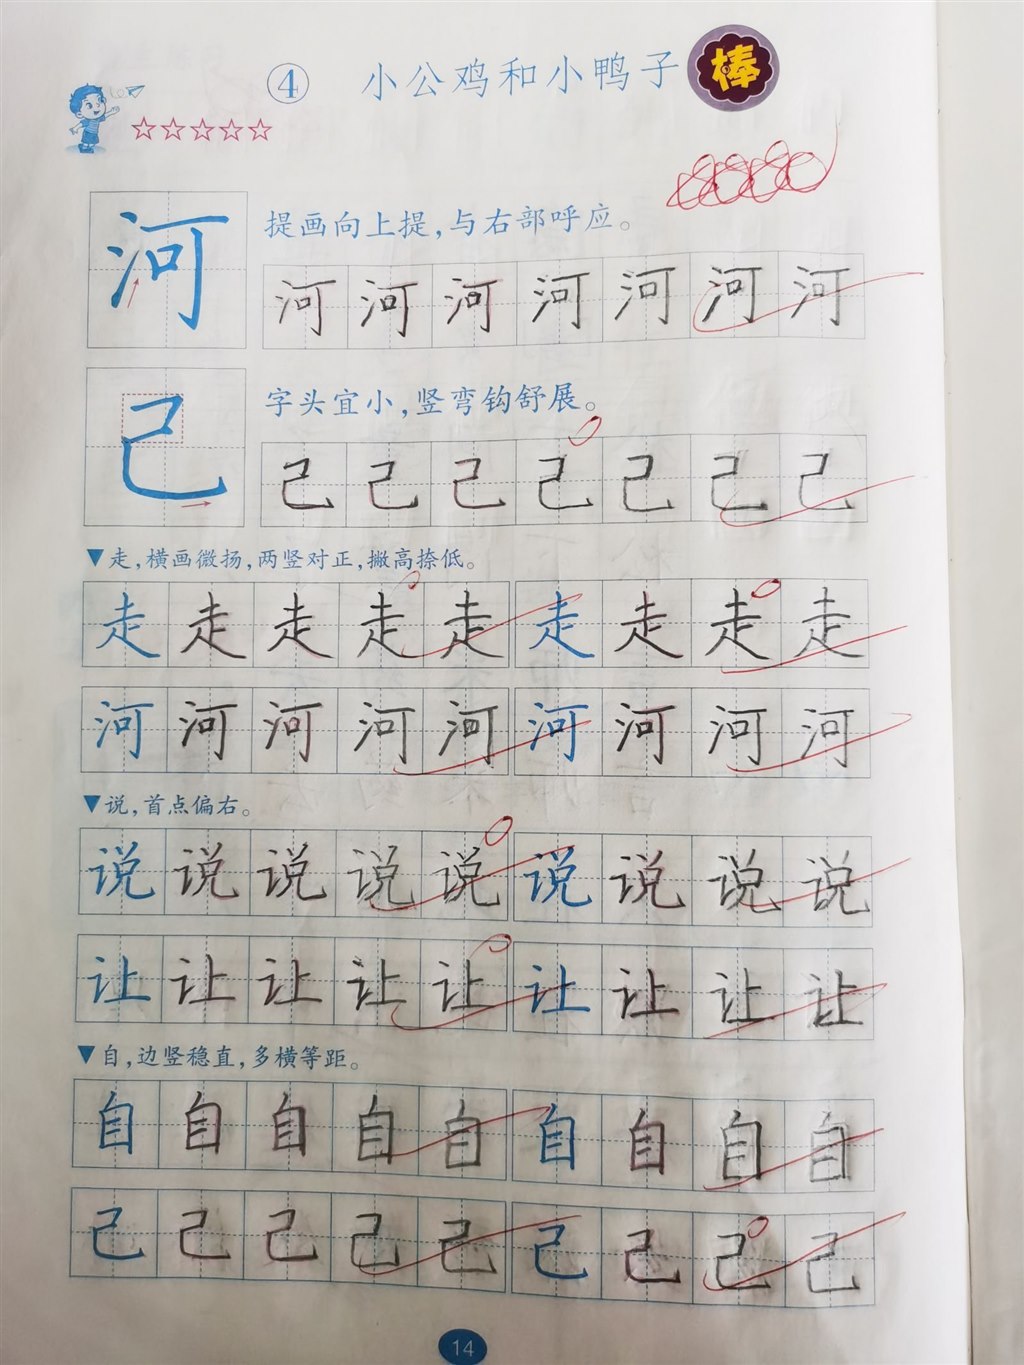 ④ 小公鸡和小鸭子 棒
河 提画向上提,与右部呼应。
河 河 河 河 河 河 河
己 字头宜小,竖弯钩舒展。
己 己 己 己 己 己 己
▼走,横画微扬,两竖对正,撇高捺低。
走 走 走 走 走 走 走 走 走
河 河 河 河 河 河 河 河 河
▼说,首点偏右。
说 说 说 说 说 说 说 说 说
让 让 让 让 让 让 让 让 让
▼自,边竖稳直,多横等距。
自 自 自 自 自 自 自 自 自
己 己 己 己 己 己 己 己 己
14